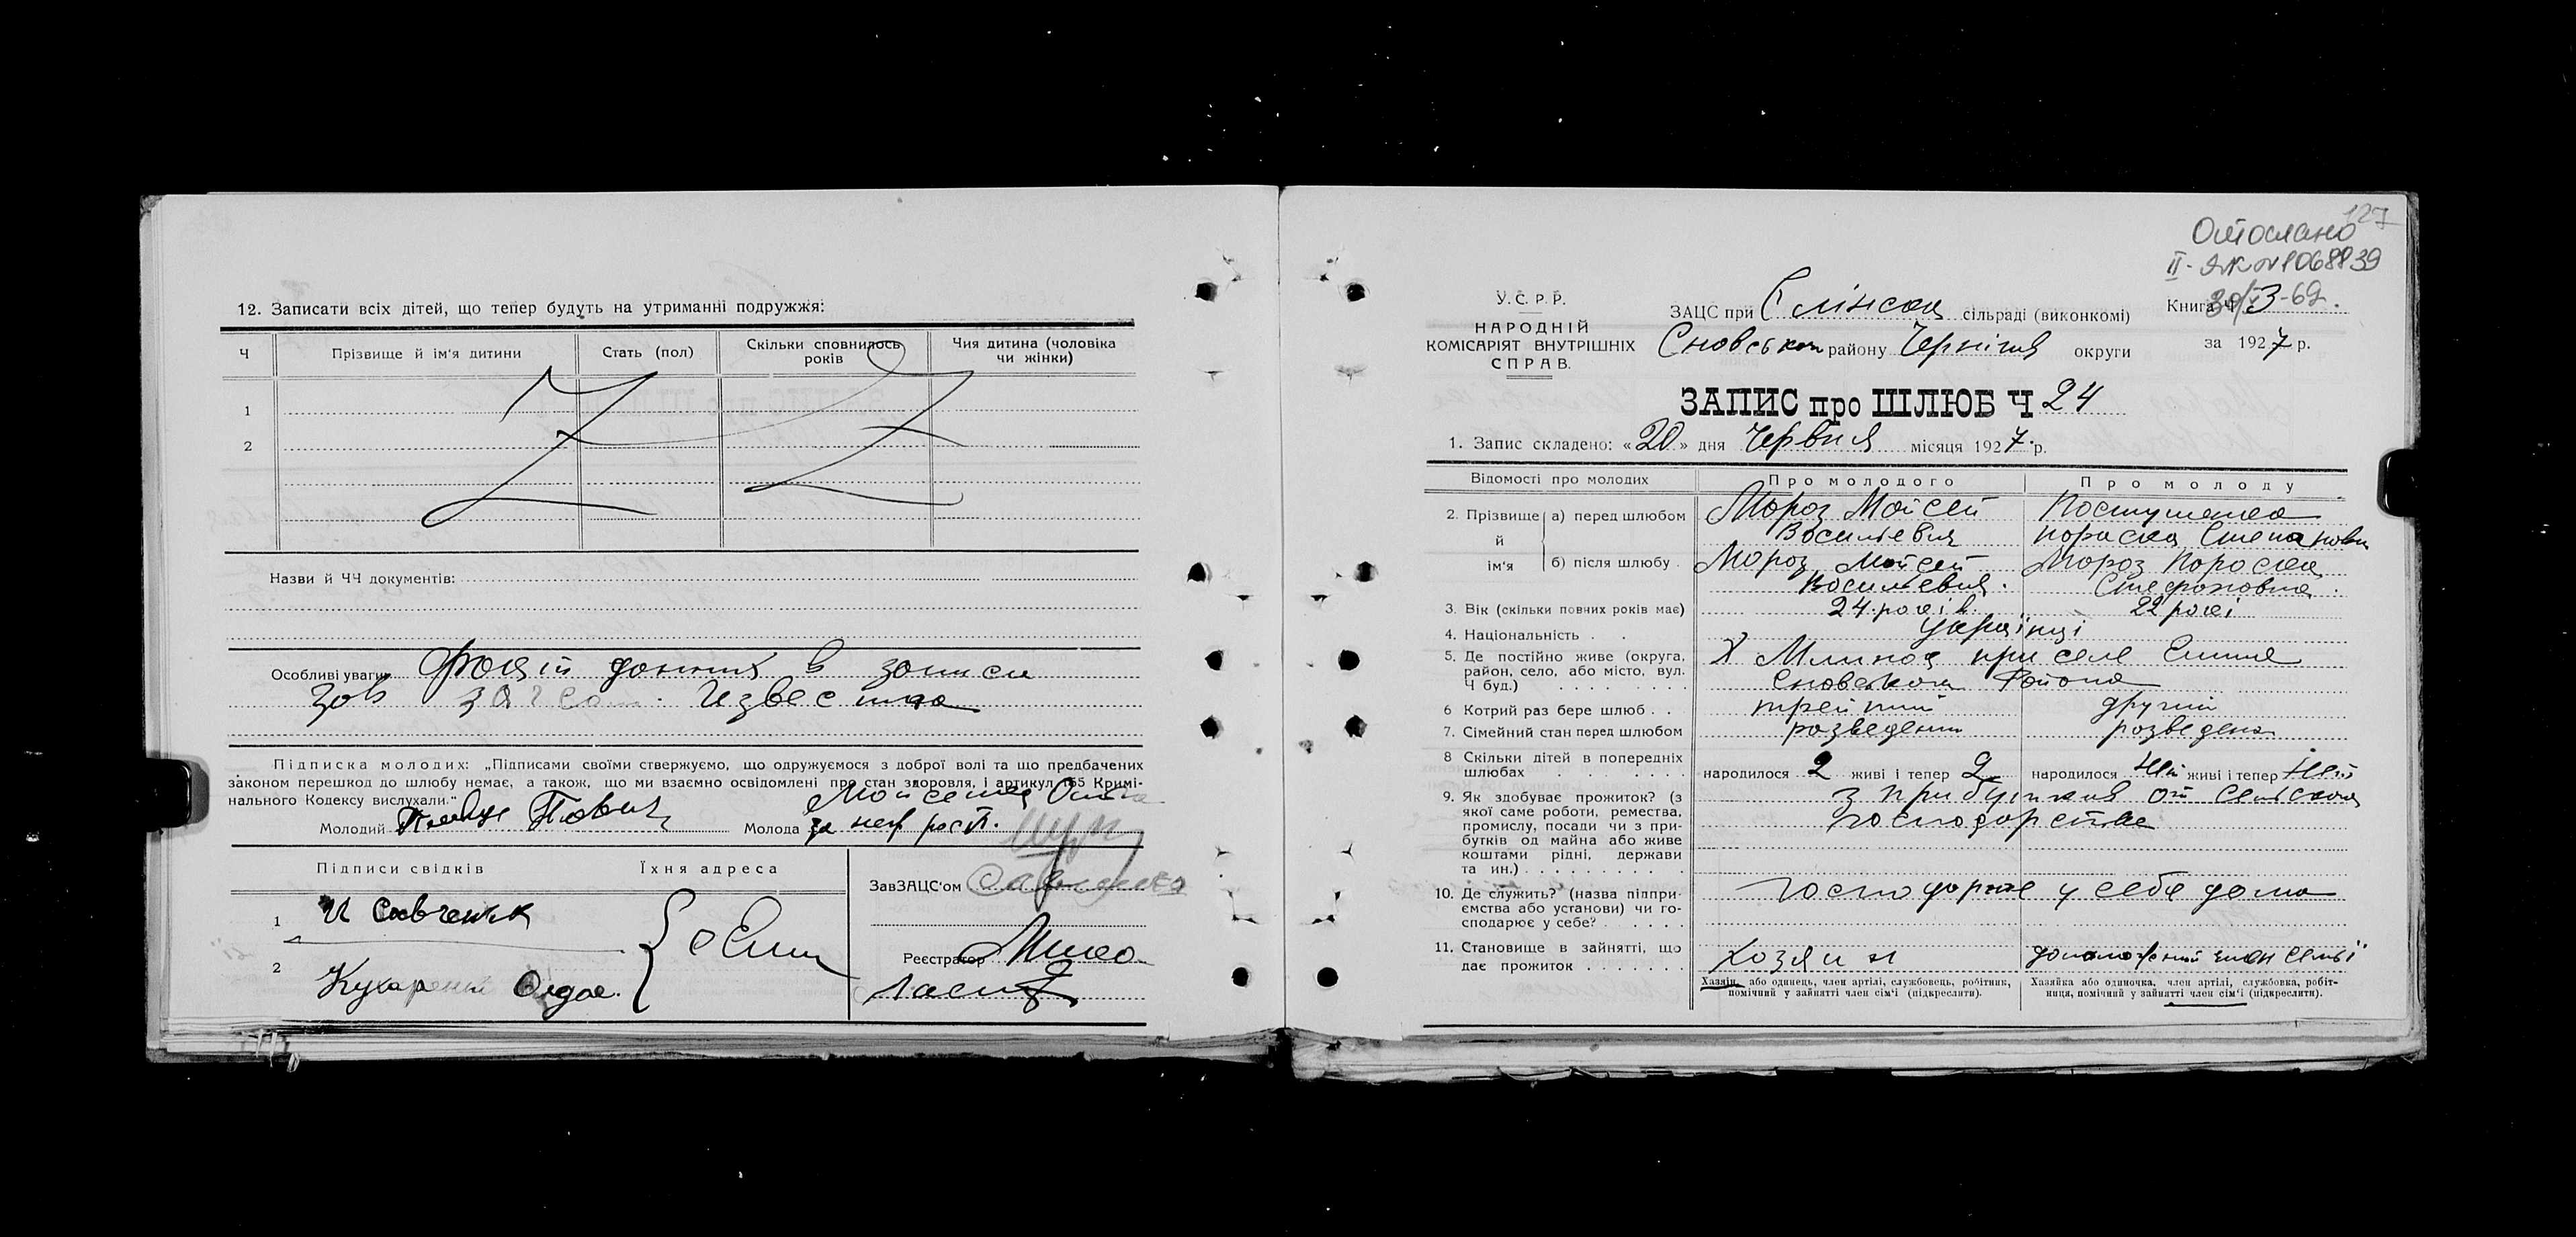 12. Записати всіх дітей, що тепер будуть на утриманні подружжя:
Ч
Прізвище й ім'я дитини
Стать (пол)
Скільки сповнилось років
Чия дитина (чоловіка чи жінки)
1
2
Назви й ЧЧ документів:
Особливі уваги
в записи
Извесшно
Підписка молодих: „Підписами своїми ствержуємо, що одружуємося з доброї волі та що предбачених
законом перешкод до шлюбу немає, а також, що ми взаємно освідомлені про стан здоровля, і артикул 155 Кримі-
нального Кодексу вислухали."
Молодий
Молода за неграсп.
Підписи свідків
Їхня адреса
ЗавЗАЦС'ом
1 И Савченък
2
Реєстратор
127
Отослано
30/V-3-69.
У.С.Р.Р.
НАРОДНІЙ
КОМІСАРІЯТ ВНУТРІШНІХ
СПРАВ.
ЗАЦС при Єлінсой сільраді (виконкомі)
Сновськом району Чернігів округи
Книга Ч
за 1927 р.
ЗАПИС про ШЛЮБ Ч 24
1. Запис складено: «20» дня Червня місяця 1927 р.
Відомості про молодих
Про молодого
Про молоду
2. Прізвище й ім'я
а) перед шлюбом
Мороз Мойсей
Восильевич
Пораска Степанов
б) після шлюбу
Мороз Мойсей
Восильевич.
Мороз Пороска
Стефоновна
3. Вік (скільки повних років має)
24 років
22 рокі
4. Національність
українці
5. Де постійно живе (округа,
район, село, або місто, вул.
Ч буд.)
Х Млинок при селе Єлине
Сновського Району
6 Котрий раз бере шлюб
третий
другий
7. Сімейний стан перед шлюбом
розведений
розведена
8 Скільки дітей в попередніх
шлюбах
народилося 2 живі і тепер 2
народилося Ней живі і тепер Ней
9. Як здобуває прожиток? (з
якої саме роботи, ремества,
промислу, посади чи з при-
бутків од майна або живе
коштами рідні, держави
та ин.)
з прибутков от сельского
господарства
10. Де служить? (назва підпри-
ємства або установи) чи го-
сподарює у себе?
господарює у себе дома
11. Становище в зайнятті, що
дає прожиток
хозяин
допоможений член семьї
Хазяїн або одинець, член артілі, службовець, робітник,
помічний у зайнятті член сім'ї (підкреслити).
Хазяйка або одиночка, член артілі, службовка, робіт-
ниця, помічний у зайнятті член сім'ї (підкреслити).